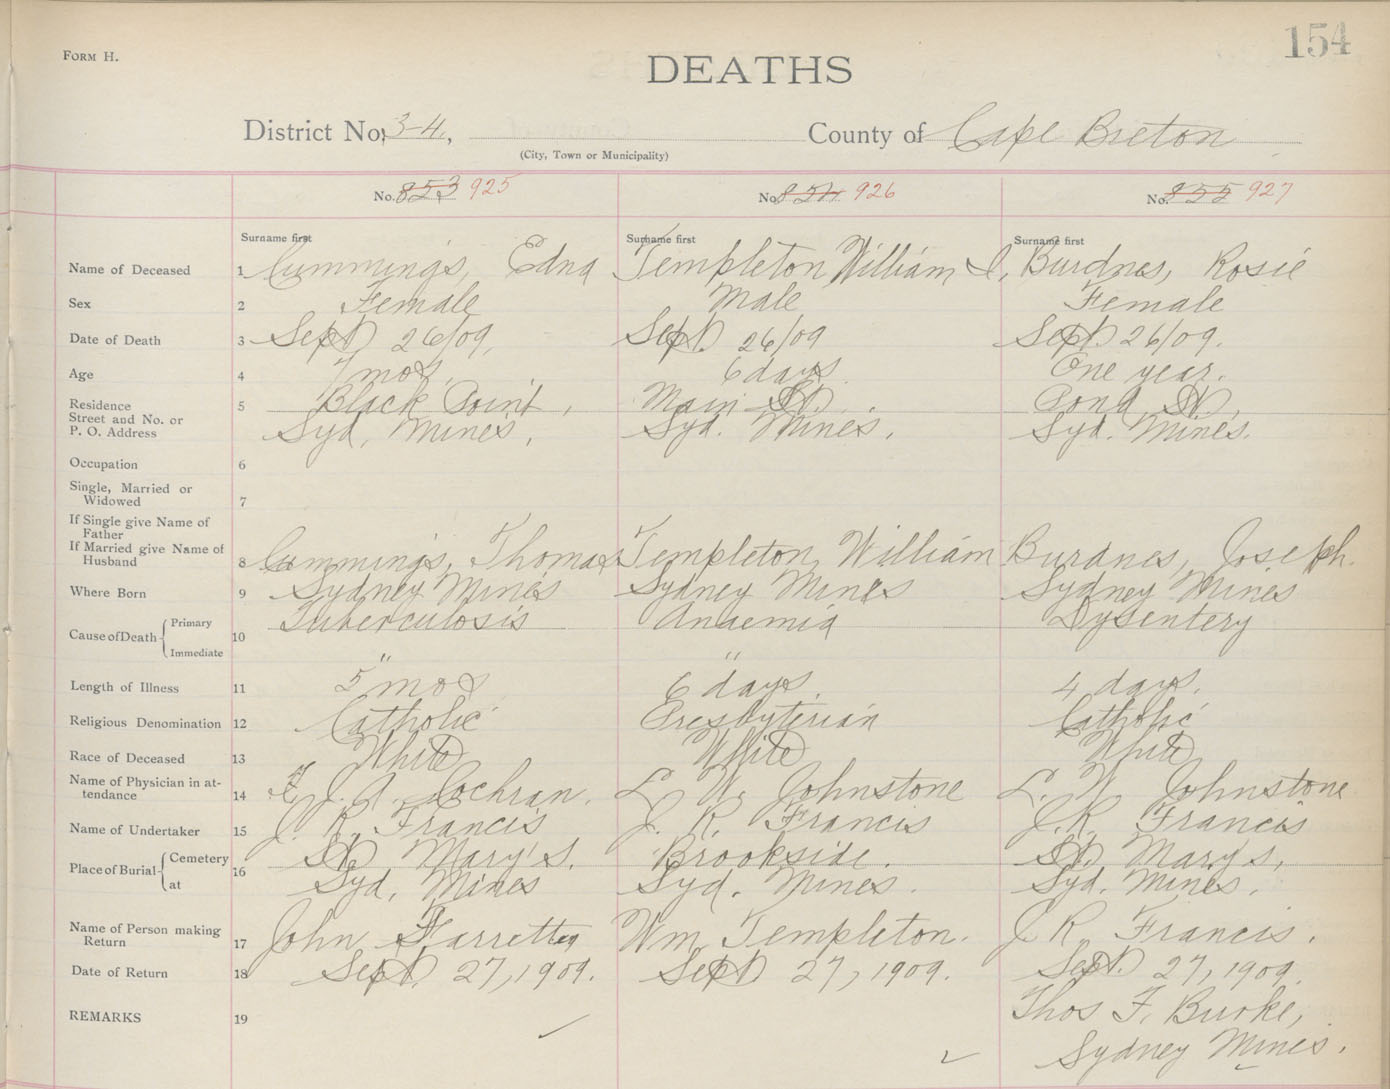 154
FORM H.
DEATHS
District No. 34, County of Cape Breton
(City, Town or Municipality)
No. 853 925 No. 854 926 No. 855 927
Surname first Surname first Surname first
Name of Deceased 1 Cummings, Edna Templeton William I, Burdnes, Rosie
Sex 2 Female Male Female
Date of Death 3 Sept 26/09, Sept. 26/09 Sept. 26/09.
Age 4 7 mos. 6 days. One year.
Residence 5 Black Point, Main St. Pond St.,
Street and No. or
P. O. Address Syd. Mines, Syd. Mines. Syd. Mines.
Occupation 6
Single, Married or
Widowed 7
If Single give Name of
Father
If Married give Name of
Husband 8 Cummings, Thomas Templeton, William Burdnes, Joseph.
Where Born 9 Sydney Mines Sydney Mines Sydney Mines
Cause of Death Primary 10 Tuberculosis Anaemia Dysentery
Immediate " "
Length of Illness 11 5 mos 6 days. 4 days.
Religious Denomination 12 Catholic Presbyterian Catholic
Race of Deceased 13 White White White
Name of Physician in at-
tendance 14 J. A. Cochran. L. W. Johnstone L. W. Johnstone
Name of Undertaker 15 J. R. Francis J. R. Francis J. R. Francis
Place of Burial Cemetery 16 St Mary's. Brookside. St. Mary's,
at Syd. Mines Syd. Mines. Syd. Mines.
Name of Person making
Return 17 John Wm Templeton. J R. Francis.
Date of Return 18 Sept. 27, 1909. Sept 27, 1909. Sept. 27, 1909.
REMARKS 19 Thos F. Burke,
Sydney Mines.